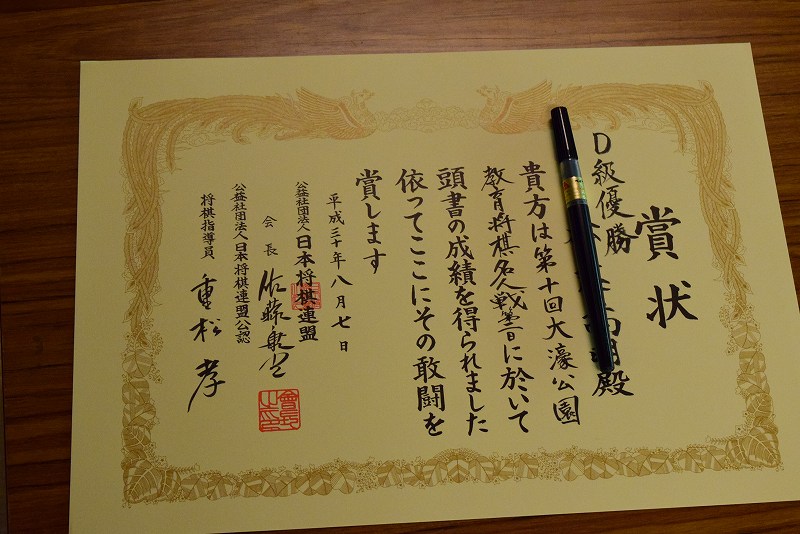 賞状
D級優勝
殿
貴方は第十回大濠公園
教育将棋名人戦第二日に於いて
頭書の成績を得られました
依ってここにその敢闘を
賞します
平成三十年八月七日
公益社団法人日本将棋連盟
会長 佐藤康光
會長之印
公益社団法人日本将棋連盟公認
将棋指導員 重松孝